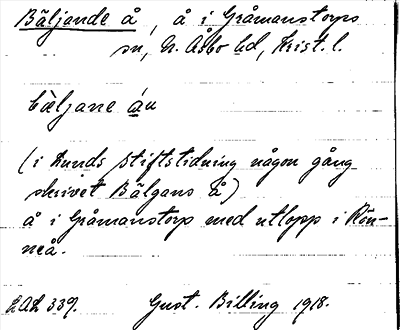 Bäljande å, å i Gråmanstorps
sn, N. Åsbo hd, Krist. l.
bæljane áu
(i Lunds stiftstidning någon gång
skrivet Bälgans å)
å i Gråmanstorp med utlopp i Rön-
neå.
LAL 339. Gust. Billing 1918.